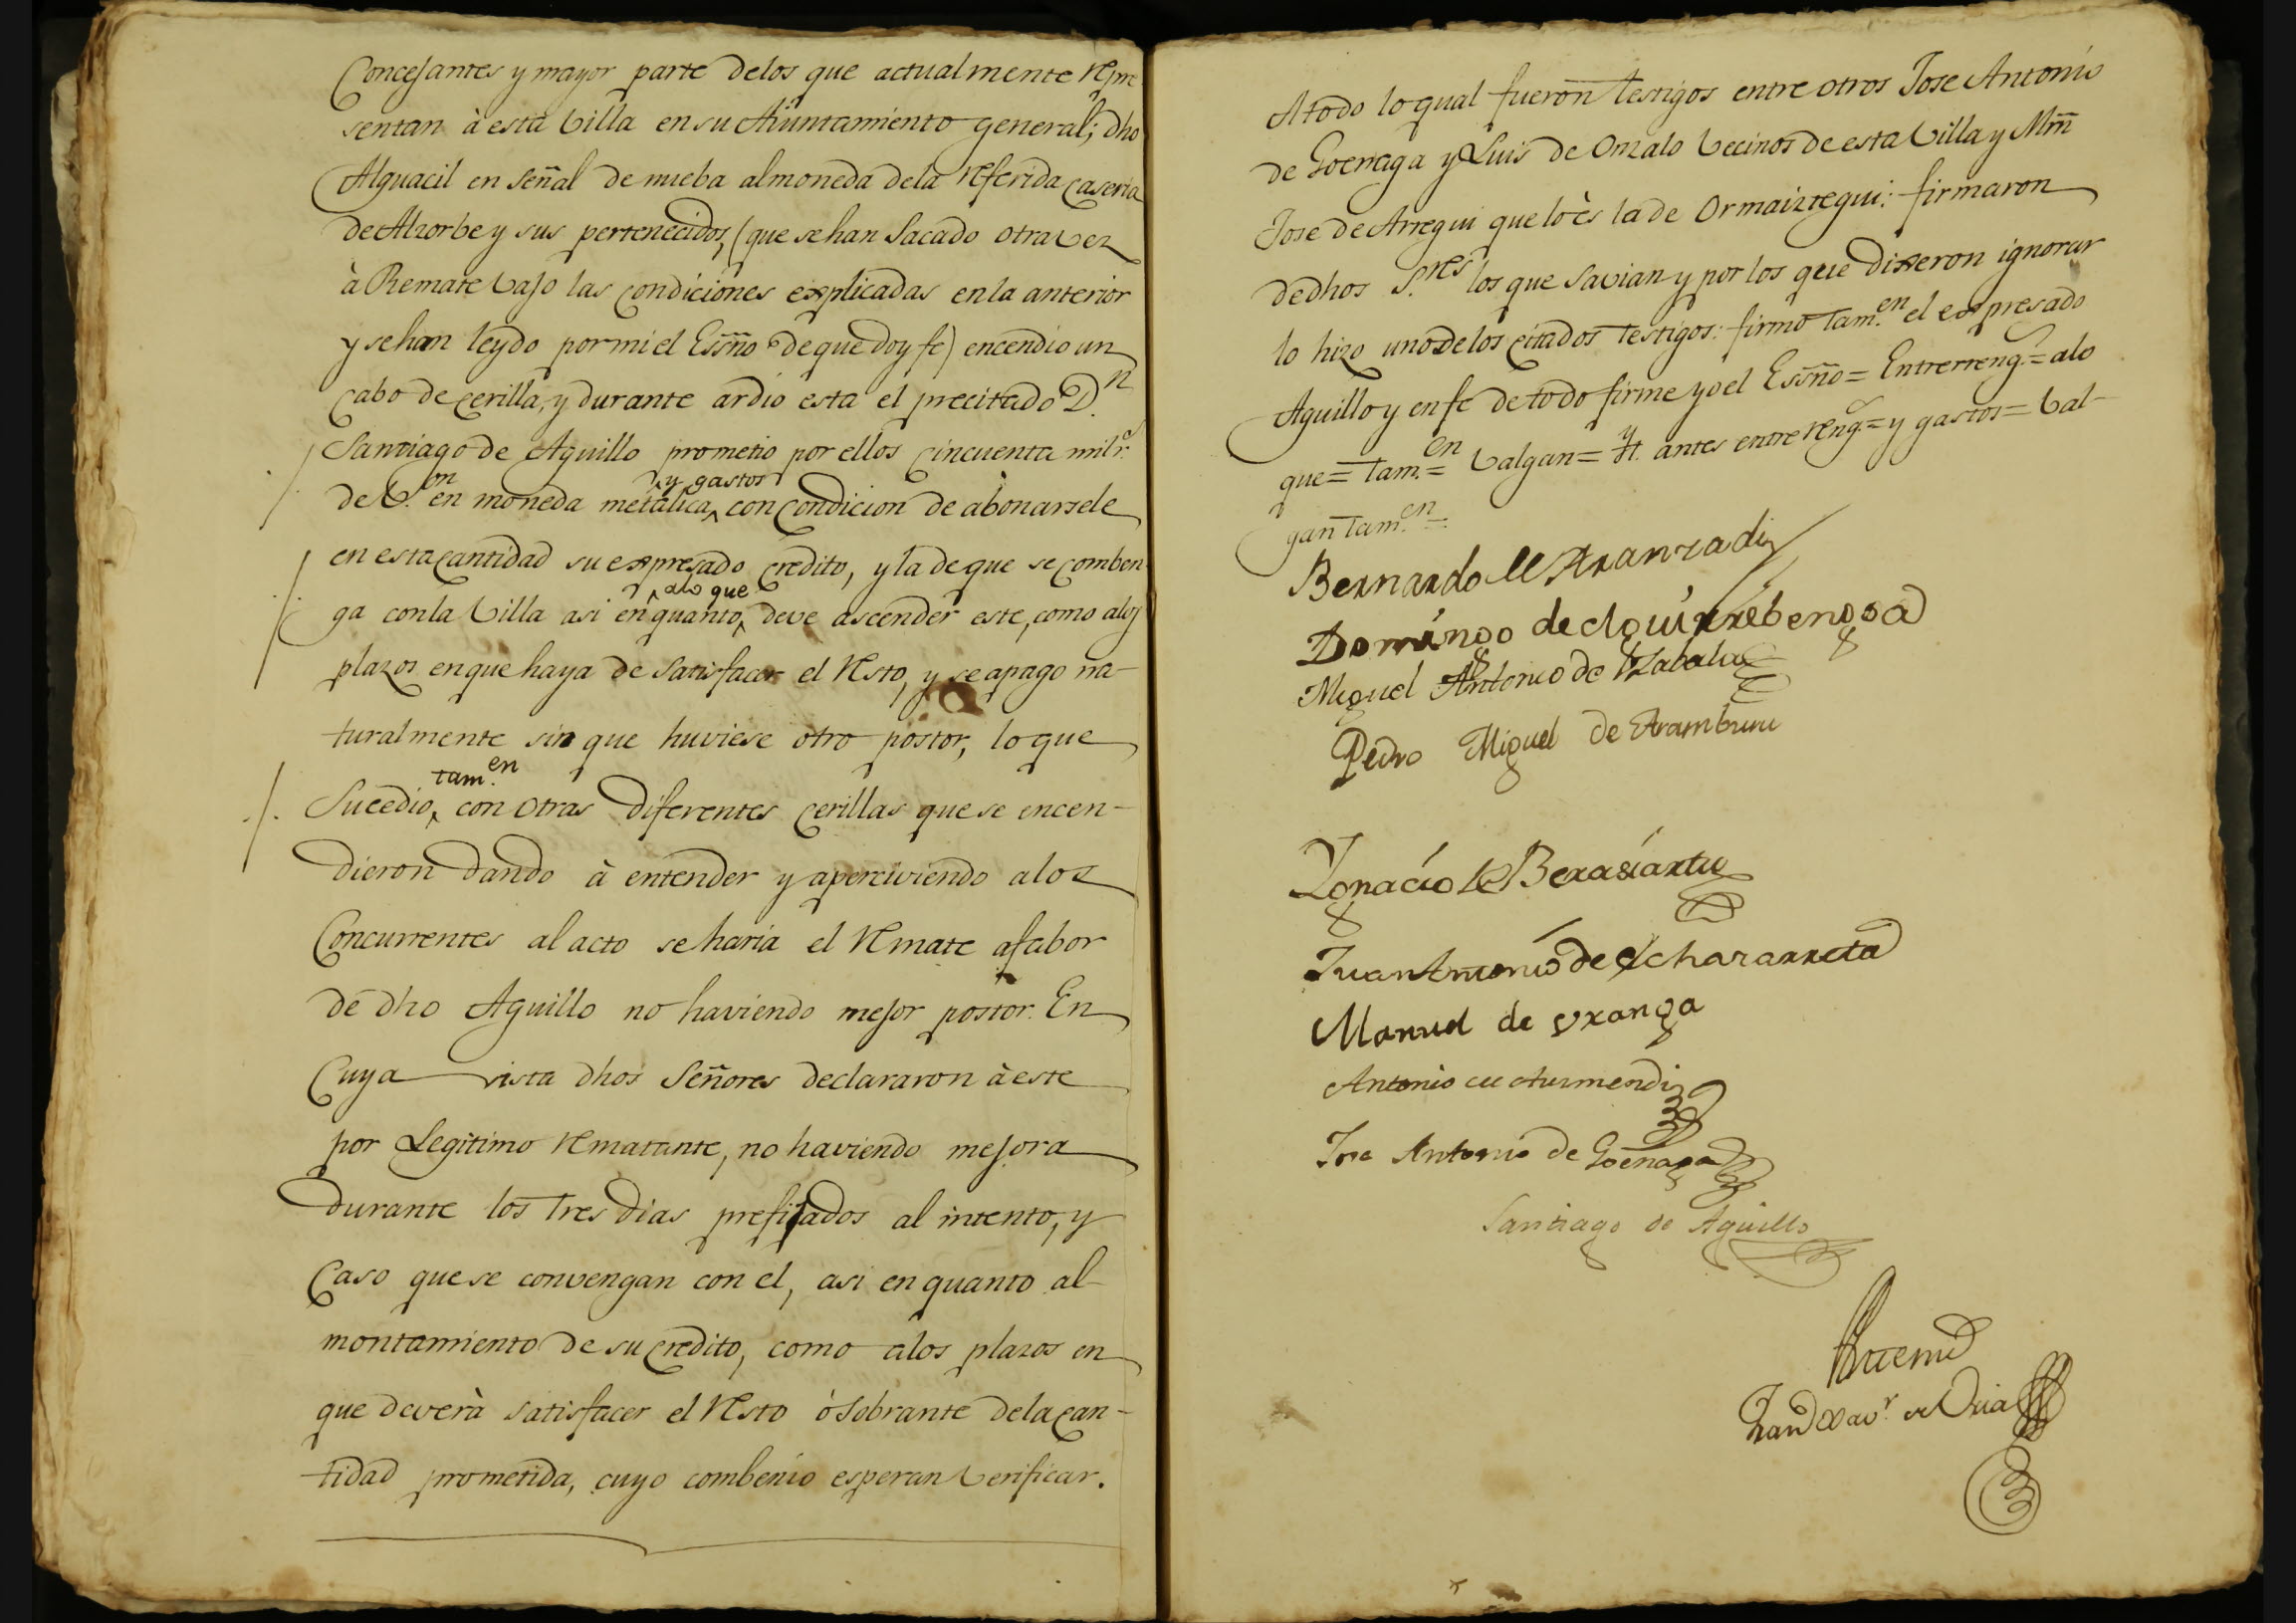 Concejantes y mayor parte delos que actualmente repre
sentan à esta Villa en su Aiuntamiento general; dho
Alguacil en señal de nueba almoneda dela referida caseria
de Alzorbe y sus pertenecidos, (que se han sacado otra vez
à Remate vajo las condiciones explicadas en la anterior
y se han leydo por mi el Essño de que doy fe) encendio un
cabo de cerilla, y durante ardio esta el precitado D.n
Santiago de Aguillo prometio por ellos cincuenta mil r.s
y gastos
de V.on en moneda metálica, con condicion de abonarsele
en esta cantidad su expresado credito, y la de que se comben
alo que
ga con la Villa asi en quanto, deve ascender este, como alos
plazos en que haya de satisfacer el resto, y se apago na-
turalmente sin que huviese otro postor, lo que
tam.en
sucedio, con otras diferentes cerillas que se encen-
dieron dando à entender y aperciviendo alos
Concurrentes al acto se haria el remate a fabor
de dho Aguillo no haviendo mejor postor. En
Cuya vista dhos Señores declararon à este
por Legitimo rematante, no haviendo mejora
durante los tres dias prefijados al intento, y
Caso que se convengan con el, asi en quanto al
montamiento de su credito, como alos plazos en
que deverà satisfacer el resto ò sobrante dela can-
tidad prometida, cuyo combenio esperan verificar.
A todo lo qual fueron testigos entre otros Jose Antonio
de Goenaga y Luis de Onzalo Vecinos de esta Villa y Mrn
Jose de Arregui que lo ès la de Ormaiztegui: firmaron
de dhos S.res los que savian y por los que dixeron ignorar
lo hizo uno de los citados testigos: firmo tam.en el expresado
Aguillo y en fe de todo firme yo el Essño = Entrerreng.s = alo
que = tam.en = Valgan = Yt. antes entrereng.s = y gastos = Val-
gan tam.en =
Bernardo de Aranzadi
Domingo de Aguirrebengoa
Miguel Antonio de Zabala
Pedro Miguel de Aramburu
Ygnacio de Berasiartu
Juan Antonio de Echararreta
Manuel de Uranga
Antonio de Aurmendi
Jose Antonio de Goenaga
Santiago de Aguillo
Antemi
Juan Xav.r de Oria